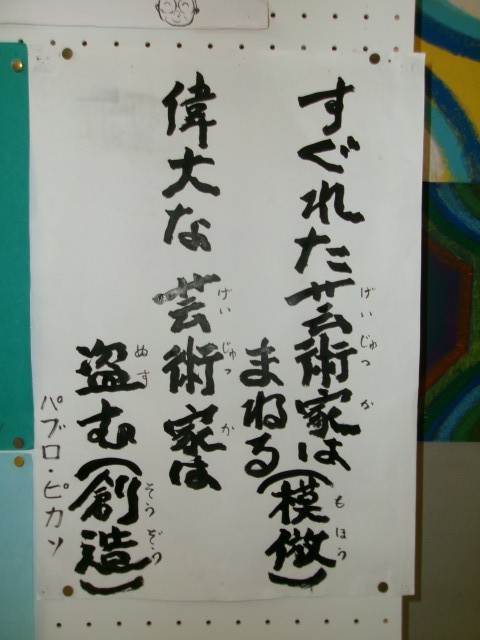 すぐれた芸術家は
まねる(模倣)
偉大な芸術家は
盗む(創造)
パブロ・ピカソ
げいじゅつか
もほう
げいじゅつか
ぬす
そうぞう